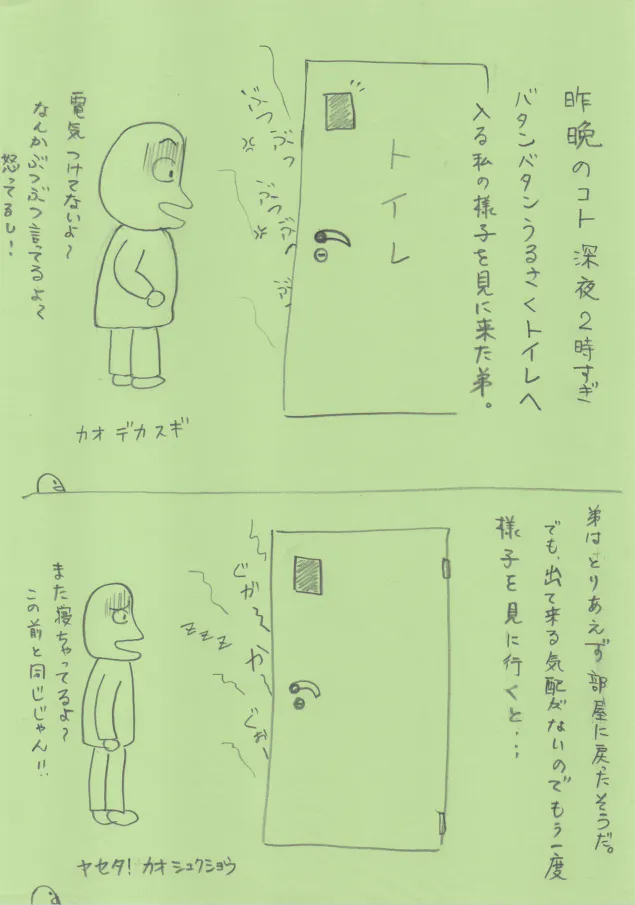 昨晩のコト 深夜2時すぎ
バタンバタンうるさくトイレへ
入る私の様子を見に来た弟。
トイレ
ぶつ
ぶつ
ぶつぶつ
ぶつ
電気つけてないよ〜
なんかぶつぶつ言ってるよ〜
怒ってるし!
カオ デカスギ
弟はとりあえず部屋に戻ったそうだ。
でも、出て来る気配がないのでもう一度
様子を見に行くと・・・
ぐが
zzz
ぐぉー
また寝ちゃってるよ〜
この前と同じじゃん!!
ヤセタ! カオシュクショウ